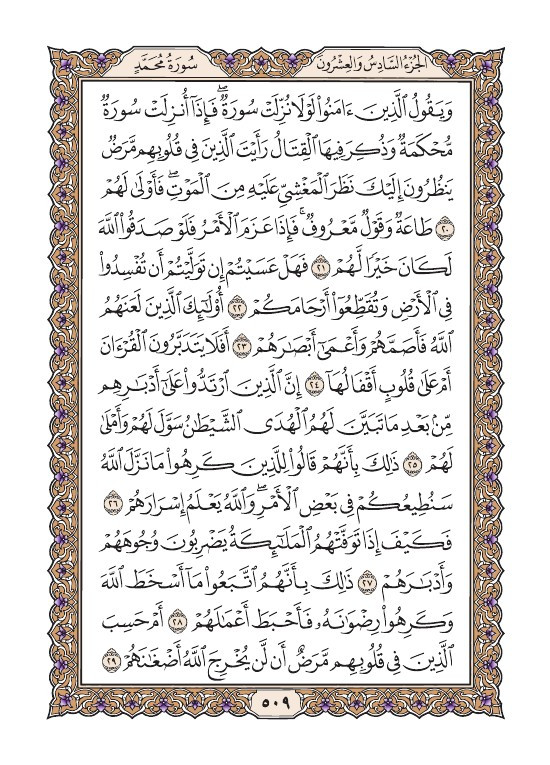 سُورَةُ مُحَمَّدٍ
الجُزْءُ السَّادِسُ وَالعِشْرُونَ
وَيَقُولُ ٱلَّذِينَ ءَامَنُواْ لَوۡلَا نُزِّلَتۡ سُورَةٞۖ فَإِذَآ أُنزِلَتۡ سُورَةٞ
مُّحۡكَمَةٞ وَذُكِرَ فِيهَا ٱلۡقِتَالُ رَأَيۡتَ ٱلَّذِينَ فِي قُلُوبِهِم مَّرَضٞ
يَنظُرُونَ إِلَيۡكَ نَظَرَ ٱلۡمَغۡشِيِّ عَلَيۡهِ مِنَ ٱلۡمَوۡتِۖ فَأَوۡلَىٰ لَهُمۡ
٢٠ طَاعَةٞ وَقَوۡلٞ مَّعۡرُوفٞۚ فَإِذَا عَزَمَ ٱلۡأَمۡرُ فَلَوۡ صَدَقُواْ ٱللَّهَ
لَكَانَ خَيۡرٗا لَّهُمۡ ٢١ فَهَلۡ عَسَيۡتُمۡ إِن تَوَلَّيۡتُمۡ أَن تُفۡسِدُواْ
فِي ٱلۡأَرۡضِ وَتُقَطِّعُوٓاْ أَرۡحَامَكُمۡ ٢٢ أُوْلَٰٓئِكَ ٱلَّذِينَ لَعَنَهُمُ
ٱللَّهُ فَأَصَمَّهُمۡ وَأَعۡمَىٰٓ أَبۡصَٰرَهُمۡ ٢٣ أَفَلَا يَتَدَبَّرُونَ ٱلۡقُرۡءَانَ
أَمۡ عَلَىٰ قُلُوبٍ أَقۡفَالُهَآ ٢٤ إِنَّ ٱلَّذِينَ ٱرۡتَدُّواْ عَلَىٰٓ أَدۡبَٰرِهِم
مِّنۢ بَعۡدِ مَا تَبَيَّنَ لَهُمُ ٱلۡهُدَى ٱلشَّيۡطَٰنُ سَوَّلَ لَهُمۡ وَأَمۡلَىٰ
لَهُمۡ ٢٥ ذَٰلِكَ بِأَنَّهُمۡ قَالُواْ لِلَّذِينَ كَرِهُواْ مَا نَزَّلَ ٱللَّهُ
سَنُطِيعُكُمۡ فِي بَعۡضِ ٱلۡأَمۡرِۖ وَٱللَّهُ يَعۡلَمُ إِسۡرَارَهُمۡ ٢٦
فَكَيۡفَ إِذَا تَوَفَّتۡهُمُ ٱلۡمَلَٰٓئِكَةُ يَضۡرِبُونَ وُجُوهَهُمۡ
وَأَدۡبَٰرَهُمۡ ٢٧ ذَٰلِكَ بِأَنَّهُمُ ٱتَّبَعُواْ مَآ أَسۡخَطَ ٱللَّهَ
وَكَرِهُواْ رِضۡوَٰنَهُۥ فَأَحۡبَطَ أَعۡمَٰلَهُمۡ ٢٨ أَمۡ حَسِبَ
ٱلَّذِينَ فِي قُلُوبِهِم مَّرَضٌ أَن لَّن يُخۡرِجَ ٱللَّهُ أَضۡغَٰنَهُمۡ ٢٩
٥٠٩